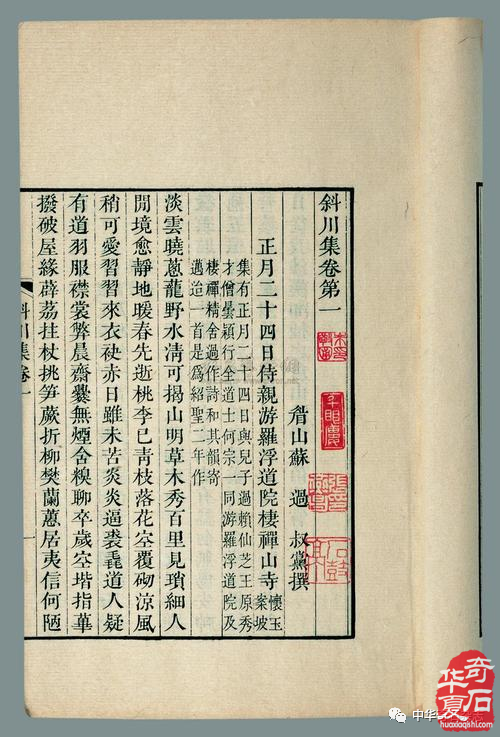 斜川集卷第一
眉山蘇 過 叔黨撰
正月二十四日侍親游羅浮道院棲禪山寺
懷玉
案坡
集有正月二十四日與兒子過賴仙芝王原秀
才僧曇穎行全道士何宗一同游羅浮道院及
棲禪精舍過作詩和其韻寄
邁迨一首是爲紹聖二年作
淡雲曉蔥蘢野水清可揭山明草木秀百里見瑣細人
閒境愈靜地暖春先逝桃李已青枝落花空覆砌涼風
稍可愛習習來衣袂赤日雖未苦炎炎逼裘毳道人疑
有道羽服襟裳弊晨齋爨無煙舍糗聊卒歲空堦指蓽
撥破屋緣薜荔拄杖挑筍蕨折柳樊蘭蕙居夷信何陋
斜川集卷一
一
千眼廬
石鼓亭
中华
奇石
华夏
huaxiaqishi.com